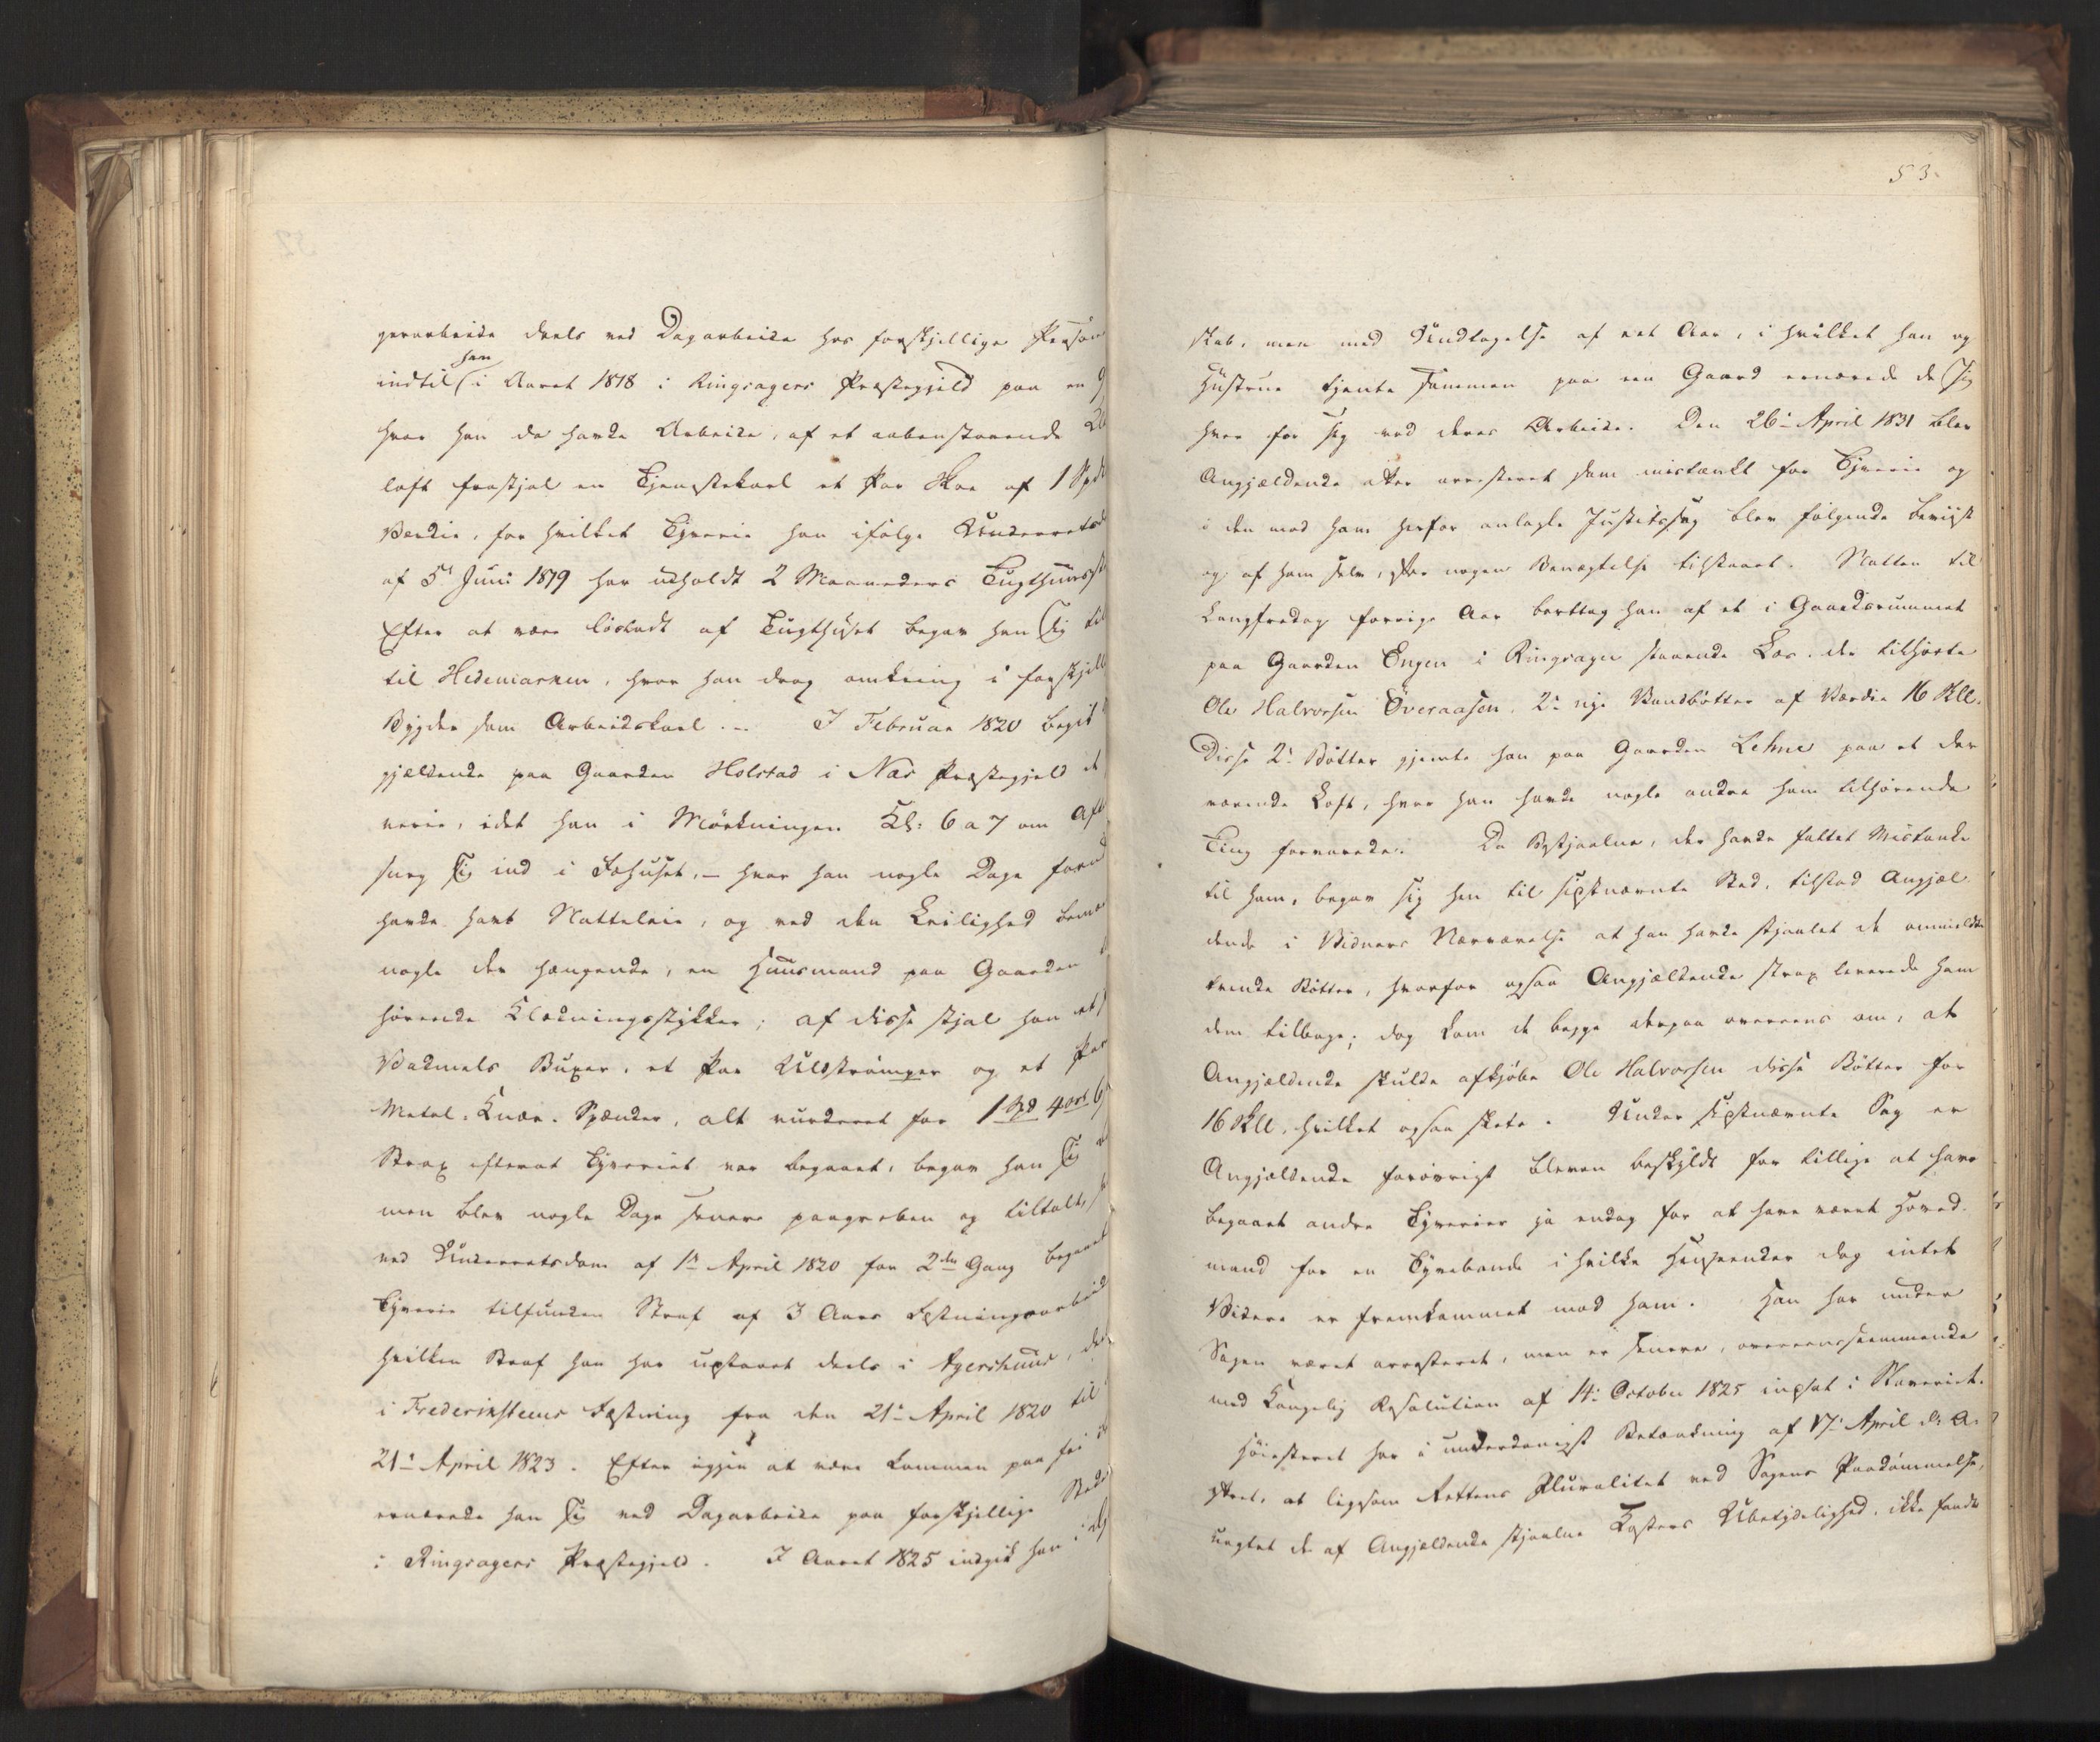 gerarbeide deels ved Dagarbeide hos forskjellige Person
han
indtil i Aaret 1818 i Ringsagers Præstegjeld paa en G
hvor han da havde Arbeide, af et aabenstaaende
loft frastjal en Tjenestekarl et Par Skoe af 1 Spd
Værdie, for hvilket Tyverie han ifølge Underrets
af 5t Juni 1819 har udholdt 2 Maaneders Tugthuus
Efter at være løsladt af Tugthuset begav han sig til
til Hedemarken, hvor han drog omkring i forskjell
Bygder som Arbeidskarl. – I Februar 1820 begik
gjældende paa Gaarden Holstad i Næs Præstegjeld et
verie, idet han i Mørkningen Kl: 6 a 7 om Aft
sneg sig ind i Fæhuset, – hvor han nogle Dage forud
havde havt Natteleie, og ved den Leilighed
nogle der hængende, en Huusmand paa Gaarden
hørende Klædningsstykker; af disse stjal han et
Vadmels Buxer, et Par Uldstrømper og et Par
Metal-Knæe-Spænder, alt vurderet for 1 Spd 4 ort 6
Strax efterat Tyveriet var begaaet, begav han sig
men blev nogle Dage senere paagreben og tiltalt,
ved Underretsdom af 1n April 1820 for 2den Gang begaaet
Tyverie tilfunden Straf af 3 Aars Fæstningsarbeid
hvilken Straf han har udstaaet deels i Agershuus, de
i Frederiksteens Fæstning fra den 21de April 1820 til
21de April 1823. Efter igjen at være kommen paa fri
ernærede han sig ved Dagarbeide paa forskjellige Sted
i Ringsagers Præstegjeld. I Aaret 1825 indgik han i
53.
skab, men med Undtagelse af eet Aar, i hvilket han og
Hustrue tjente sammen paa een Gaard ernærede de sig
hver for sig ved deres Arbeide. Den 26de April 1831 blev
Angjældende atter arresteret som mistænkt for Tyverie og
i den mod ham herfor anlagte Justitssag blev følgende beviist
og af ham selv, efter nogen Benægtelse tilstaaet. Natten til
Langfredag forrige Aar borttog han af et i Gaardsrummet
paa Gaarden Engen i Ringsager staaende Læs, der tilhørte
Ole Halvorsen Overaasen, 2de nye Vandbøtter af Værdie 16 Skll.
Disse 2de Bøtter gjemte han paa Gaarden Lehne paa et der
værende Loft, hvor han havde nogle andre ham tilhørende
Ting forvarede. Da Bestjaalne, der havde fattet Mistanke
til ham, begav sig hen til sidstnævnte Sted, tilstod Angjæl
dende i Vidners Nærværelse at han havde stjaalet de ommeldte
tvende Bøtter, hvorfor ogsaa Angjældende strax leverede ham
dem tilbage; dog kom de begge derpaa overeens om, at
Angjældende skulde afkjøbe Ole Halvorsen disse Bøtter for
16 Skll, hvilket ogsaa skete. Under sidstnævnte Sag er
Angjældende forøvrigt bleven beskyldt for tillige at have
begaaet andre Tyverier ja endog for at have været Hoved-
mand for en Tyvebande i hvilke Henseender dog intet
Videre er fremkommet mod ham. Han har under
Sagen været arresteret, men er senere, overeensstemmende
med Kongelig Resolution af 14de October 1825 indsat i Slaveriet.
Høiesteret har i underdanigst Betænkning af 17de April d: A:
yttret, at ligesom Rettens Pluralitet ved Sagens Paadømmelse,
uagtet de af Angjældende stjaalne Kosters Ubetydelighed, ikke fandt